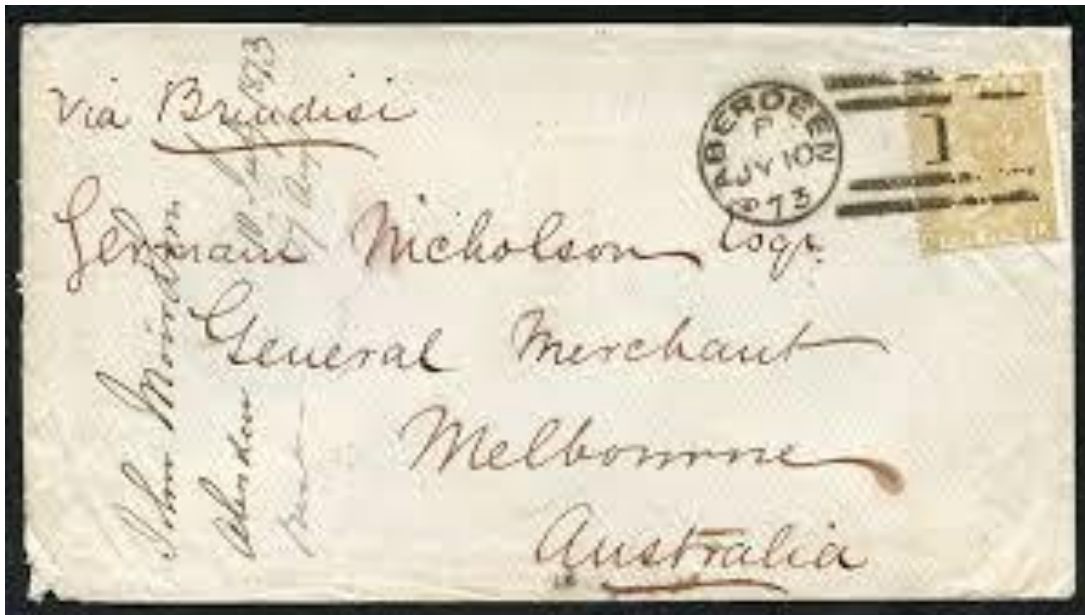 via Brindisi
ABERDEEN
P
JY 10
73
1
Germain Nicholson Esqr.
General Merchant
Melbourne
Australia
John
Aberdeen
1873